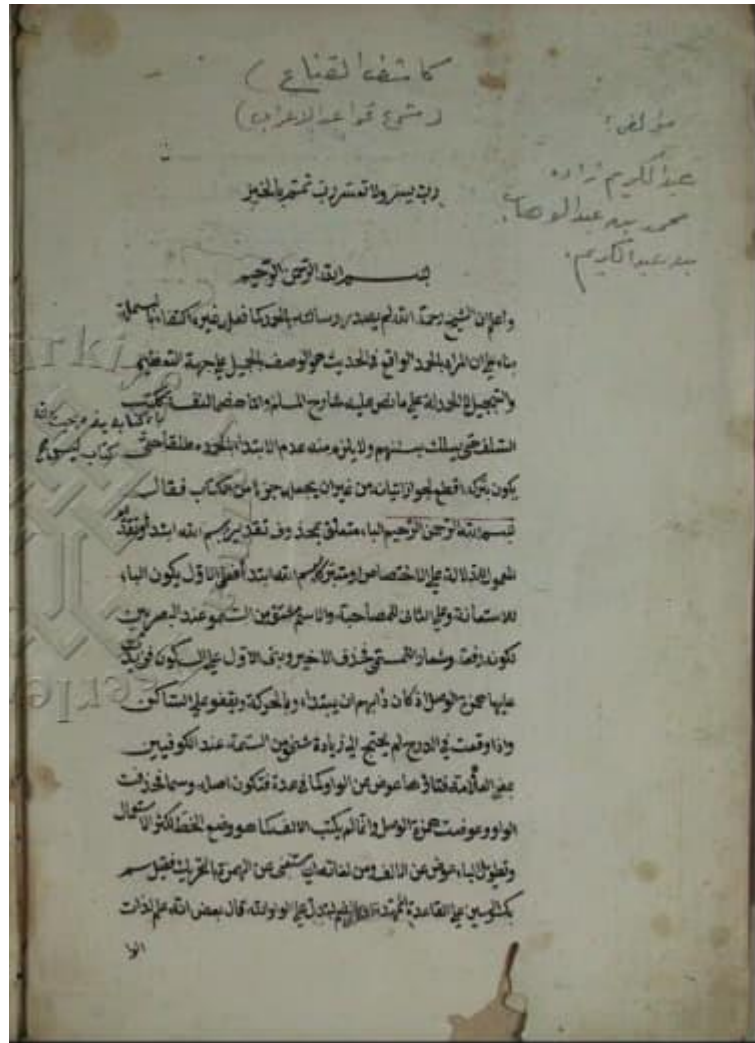 كاشف القناع )
( شرح قواعد الاعراب )
مؤلف :
عبدالكريم زاده
محمد بن عبدالوهاب
بن عبدالكريم .
رب يسر ولا تعسر رب تمم بالخير
بسم الله الرحمن الرحيم
واعلم ان الشيخ رحمة الله لم يصدر رسالته بالحمد كما فعله غيره اكتفاء بالبسملة
بناء على ان المراد بالحمد الواقع في الحديث هو الوصف بالجميل على جهة التعظيم
والتبجيل لا الحمدلة على ما نص عليه شارح
السلف حتى يسلك بسننهم ولا يلزم منه عدم الابتداء بالحمد مطلقا حتى
يكون بتركه اقطع لجواز اتيانه من غير ان يجعله جزءا من الكتاب فقال
بسم الله الرحمن الرحيم الباء متعلق بمحذوف تقديره بسم الله ابتدأ
المعمول للدلالة على الاختصاص او بسم الله ابتدأ فعلى الاول يكون الباء
للاستعانة وعلى الثاني للمصاحبة والاسم مشتق من السمو عند البصريين
لكونه رفعة وشعار للمسمى حذف الاخير وبنى الاول على السكون
عليها همزة الوصل اذ كان دابهم ان يبتدءوا بالحركة ويقفو على الساكن
واذا وقعت في الدرج لم يحتج الى زيادة شئ من السمة عند الكوفيين
بمعنى العلامة فتاؤها عوض عن الواو كما في عدة فتكون اصله وسما حذفت
الواو وعوضت همزة الوصل وانما لم يكتب الالف كما هو وضع الخط لكثرة الاستعمال
وتطويل الباء عوض عن الالف ومن لغاته استغنى عن الهمزة بالتحريك فقيل سم
بكسر السين على القاعدة ليدل على الواو والله قال بعض الله علم لذات
الوا